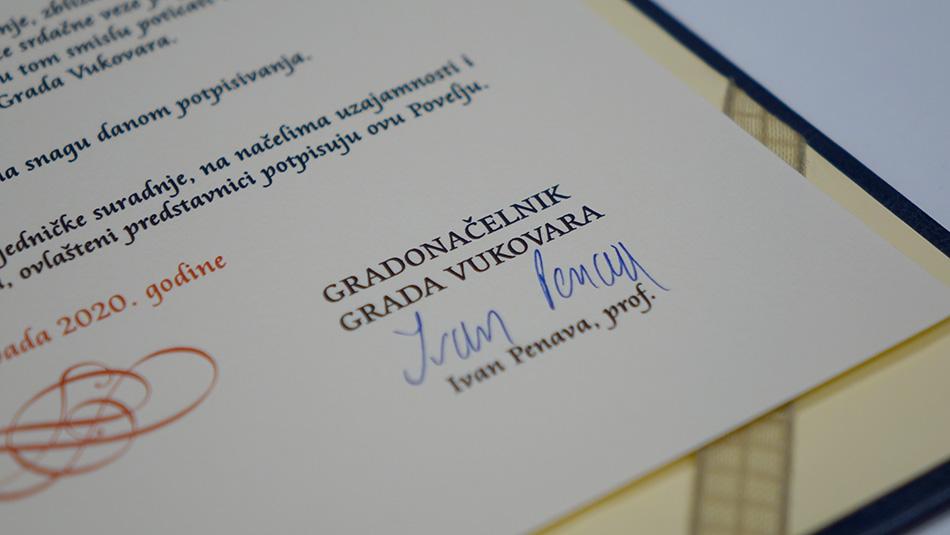 zbliž
srdačne veze
u tom smislu poticati
Grada Vukovara.
na snagu danom potpisivanja.
jedničke suradnje, na načelima uzajamnosti i
ovlašteni predstavnici potpisuju ovu Povelju.
2020. godine
GRADONAČELNIK
GRADA VUKOVARA
Ivan Penava
Ivan Penava, prof.